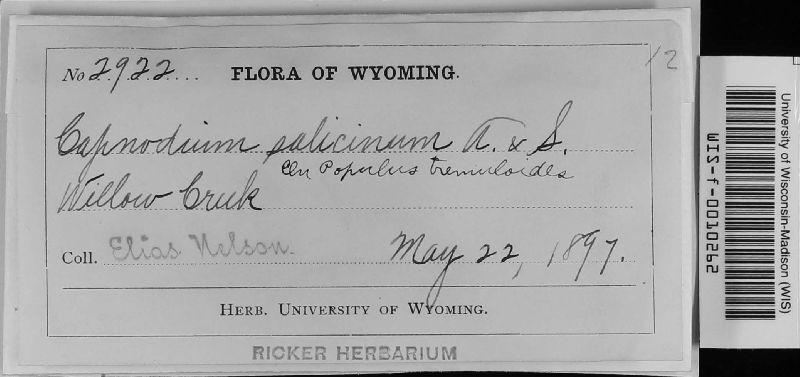 12
No 2922.... FLORA OF WYOMING.
Capnodium salicinum A. & S.
On Populus tremuloides
Willow Creek
Coll. Elias Nelson. May 22, 1897.
HERB. UNIVERSITY OF WYOMING.
RICKER HERBARIUM
University of Wisconsin-Madison (WIS)
WIS-f-0010262